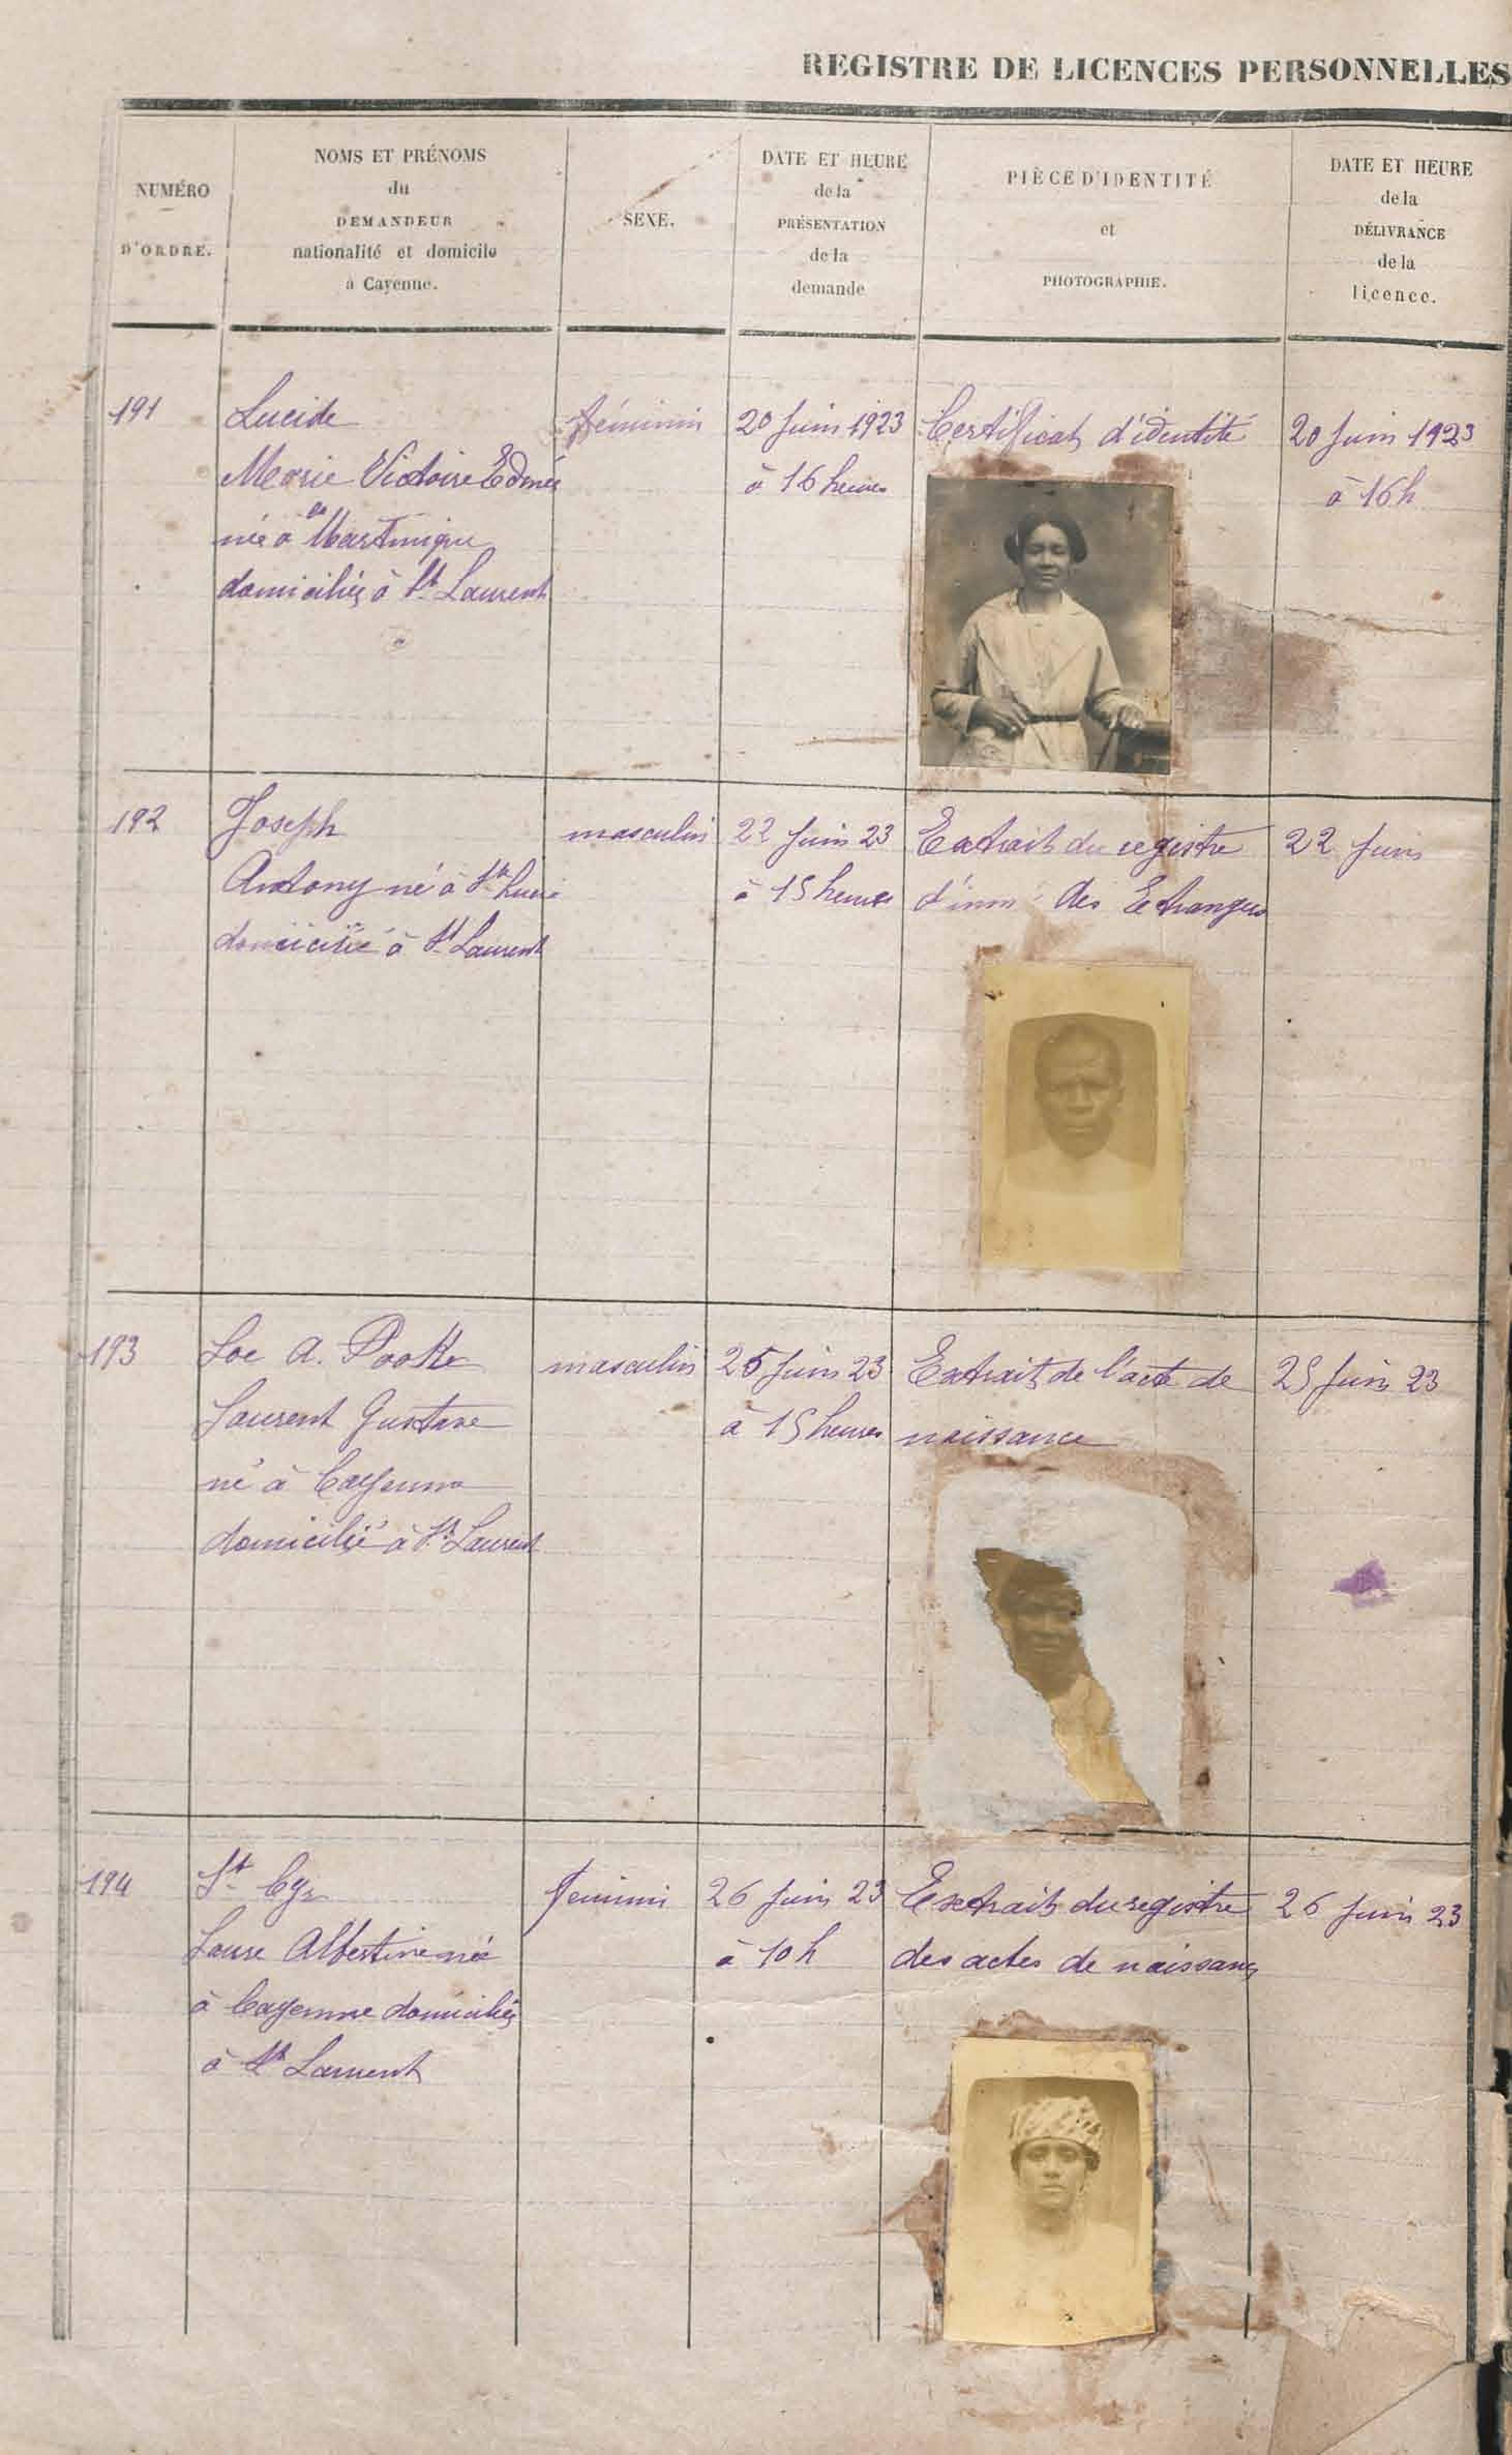 REGISTRE DE LICENCES PERSONNELLES
NUMÉRO
D'ORDRE.
NOMS ET PRÉNOMS
du
DEMANDEUR
nationalité et domicile
à Cayenne.
SEXE.
DATE ET HEURE
de la
PRÉSENTATION
de la
demande
PIÈCE D'IDENTITÉ
et
PHOTOGRAPHIE.
DATE ET HEURE
de la
DÉLIVRANCE
de la
licence.
191
Lucide
Marie Victoire Edmée
née à la Martinique
domiciliée à St Laurent
féminin
20 Juin 1923
à 16 heures
Certificat d'identité
20 Juin 1923
à 16h
192
Joseph
Antony né à Ste Lucie
domicilié à St Laurent
masculin
22 Juin 23
à 15 heures
Extrait du registre
d'imm. des Etrangers
22 Juin
193
Loe A.
Laurent Gustave
né à Cayenne
domicilié à St Laurent
masculin
25 Juin 23
à 15 heures
Extrait de l'acte de
naissance
25 Juin 23
194
St Cyr
Laure Albertine née
à Cayenne domiciliée
à St Laurent
feminin
26 Juin 23
à 10 h
Extrait du registre
des actes de naissance
26 Juin 23